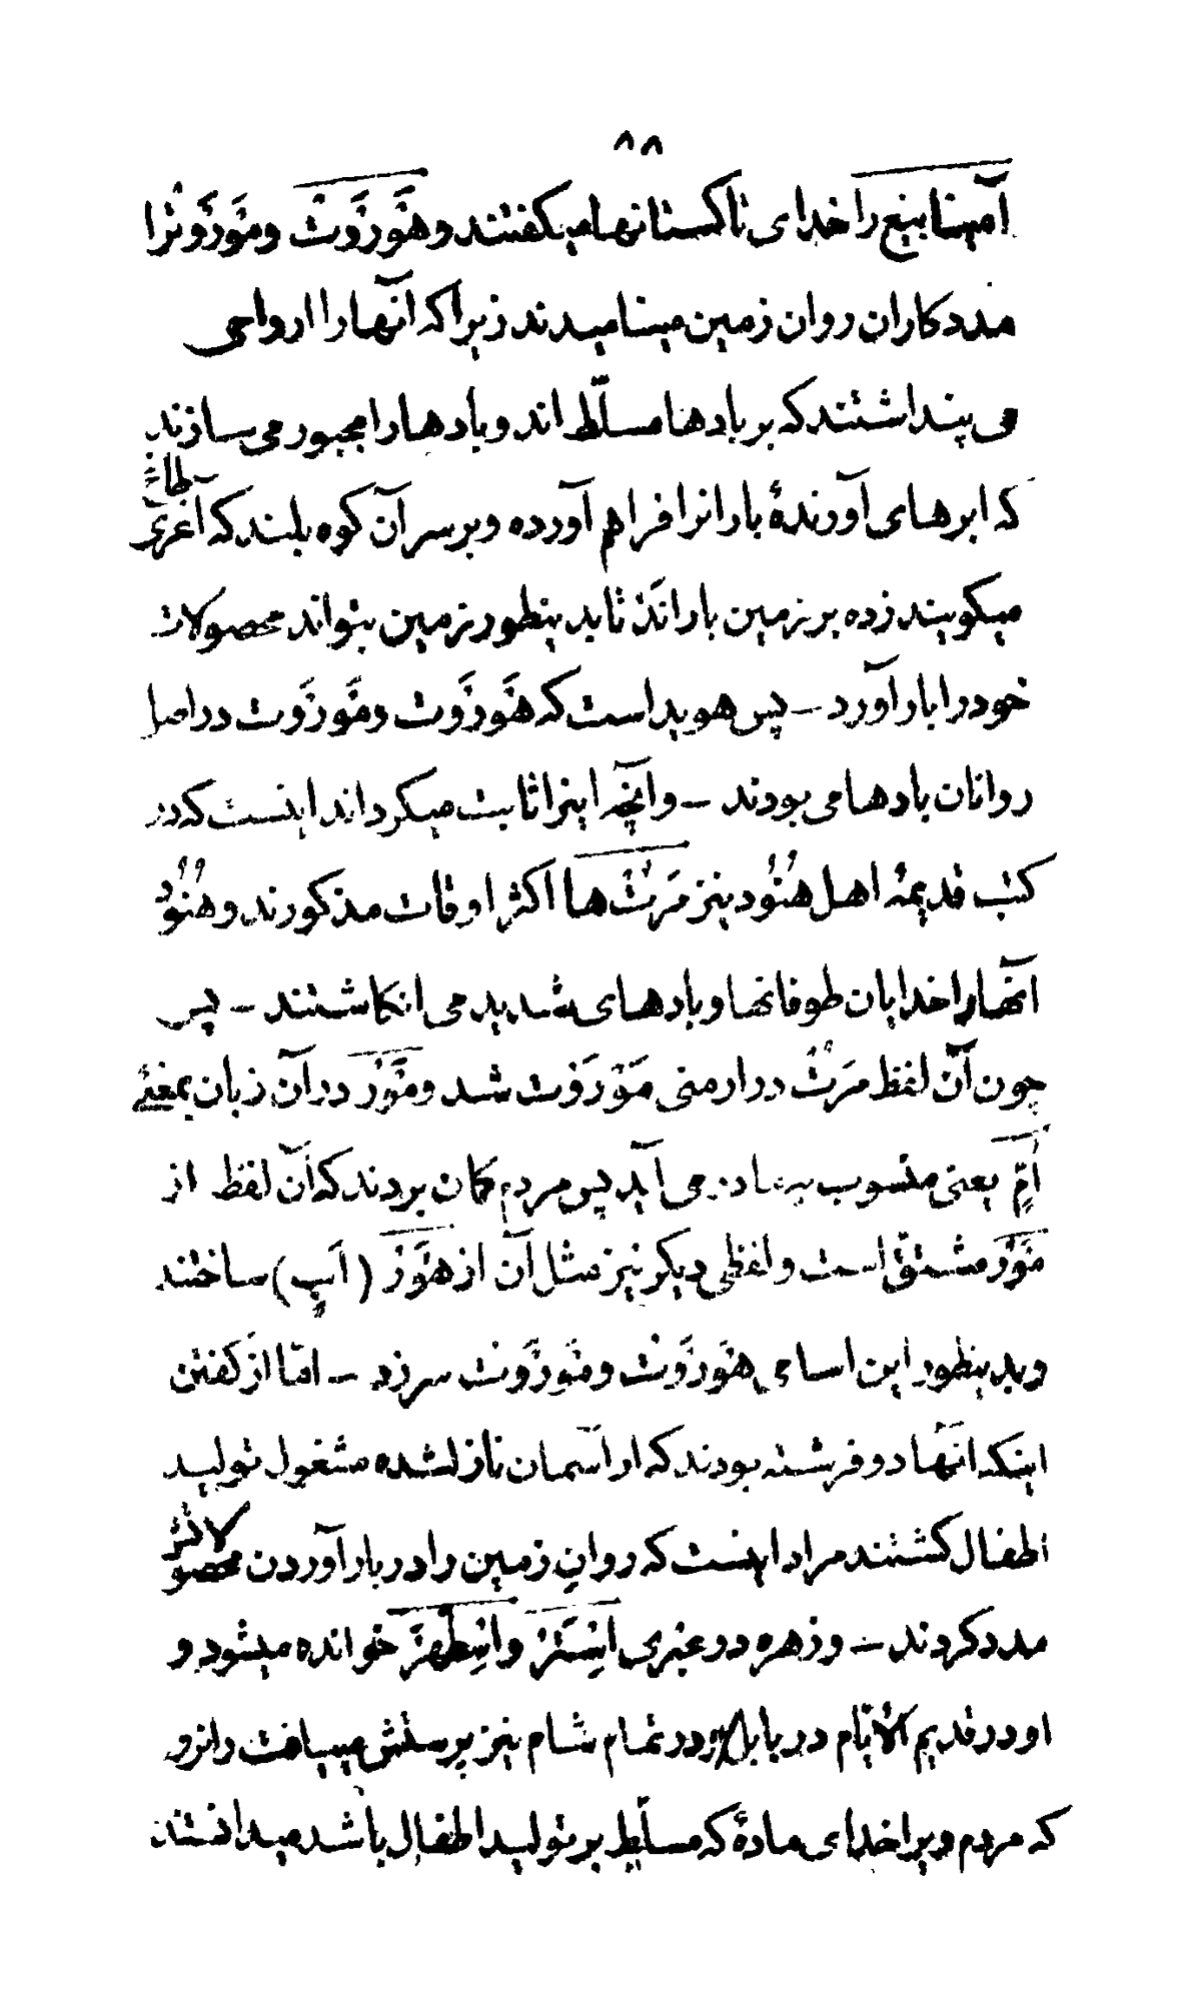 ۸۸
آمینابیغ را خدای تاکستانها میگفتند و هَوَرْوَتْ و مَوْرَوَتْرا
مددکاران روان زمین مینامیدند زیرا که آنها را ارواحی
می پنداشتند که بر بادها مسلّط اند و بادها را مجبور می سازند
که ابرهای آورندهٔ بارانرا فراهم آورده و بر سر آن کوه بلند که آغری طاغ
میگویند زده بر زمین بارانَنْد تا بدینطور زمین بتواند محصولات
خود را بار آورد – پس هویداست که هَوَرَوت و مَوَرَوت در اصل
روانان بادها می بودند – و آنچه اینرا ثابت میگرداند اینست که در
کتب قدیمهٔ اهل هُنُود نیز مَرَتْ ها اکثر اوقات مذکورند و هُنُودْ
آنها را خدایان طوفانها و بادهای شدید می انگاشتند – پس
چون آن لفظ مَرَتْ در ارمنی مَوْرَوَت شد و مَوْر در آن زبان بمعنئ
اُمّ یعنی منسوب به مادر می آید پس مردم گمان بردند که آن لفظ از
مَوْر مشتق است و لفظی دیگر نیز مثل آن از هَوَرْ (اَبٍ) ساختند
و بدینطور این اسامی هَوَرَوَتْ و مَوْرَوَت سر زد – امّا از گفتن
اینکه آنها دو فرشته بودند که از آسمان نازلشده مشغول تولید
اطفال گشتند مراد اینست که روانِ زمین را در بار آوردن محصولاتش
مدد کردند – و زهره در عبری اِشْتَرْ و اِسْطَهَرَ خوانده میشود و
او در قدیم الأیّام در بابل و در تمام شام نیز پرستش مییافت و از انرو
که مردم ویرا خدای مادهٔ که مسلّط بر تولید اطفال باشد میدانستند